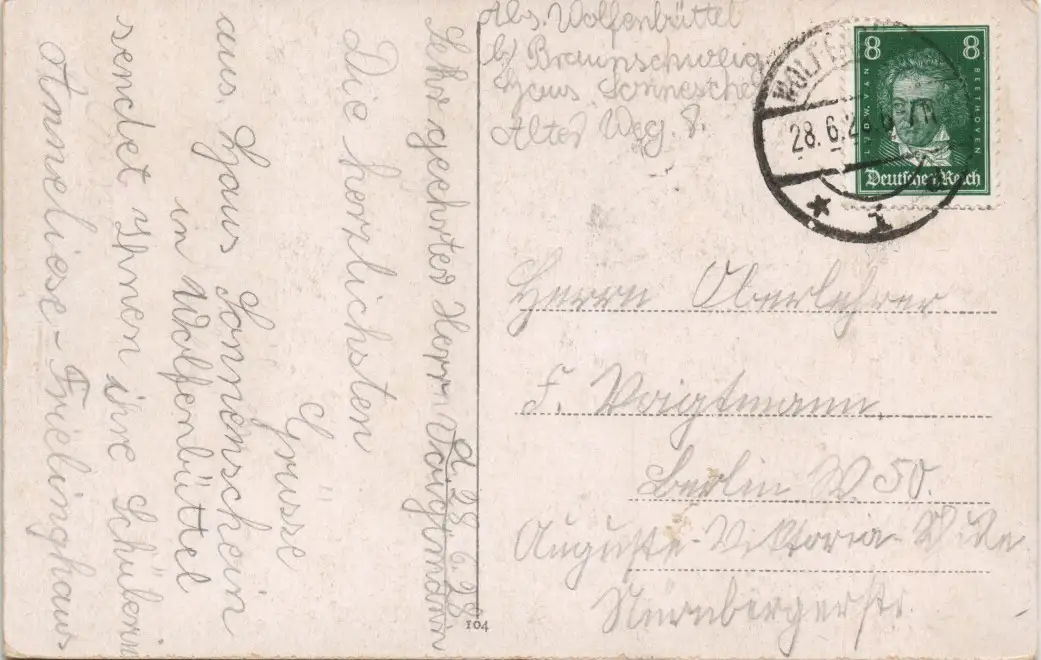 Abs. Wolfenbüttel
b/ Braunschweig.
Haus Sonnesche
Alter Weg. 8.
8 8
LUDW. VAN
BEETHOVEN
Deutsches Reich
28.6.2
Herrn Oberlehrer
F. Voigtmann,
Berlin W. 50.
Auguste-Viktoria-Schule
Nürnbergerstr.
d. 28.6.28
Sehr geehrter Herr Voigtmann
Die herzlichsten
Grüsse
aus Haus Sonnenschein
in Wolfenbüttel
sendet Ihnen ihre Schülerin
Anneliese-Frielinghaus
104